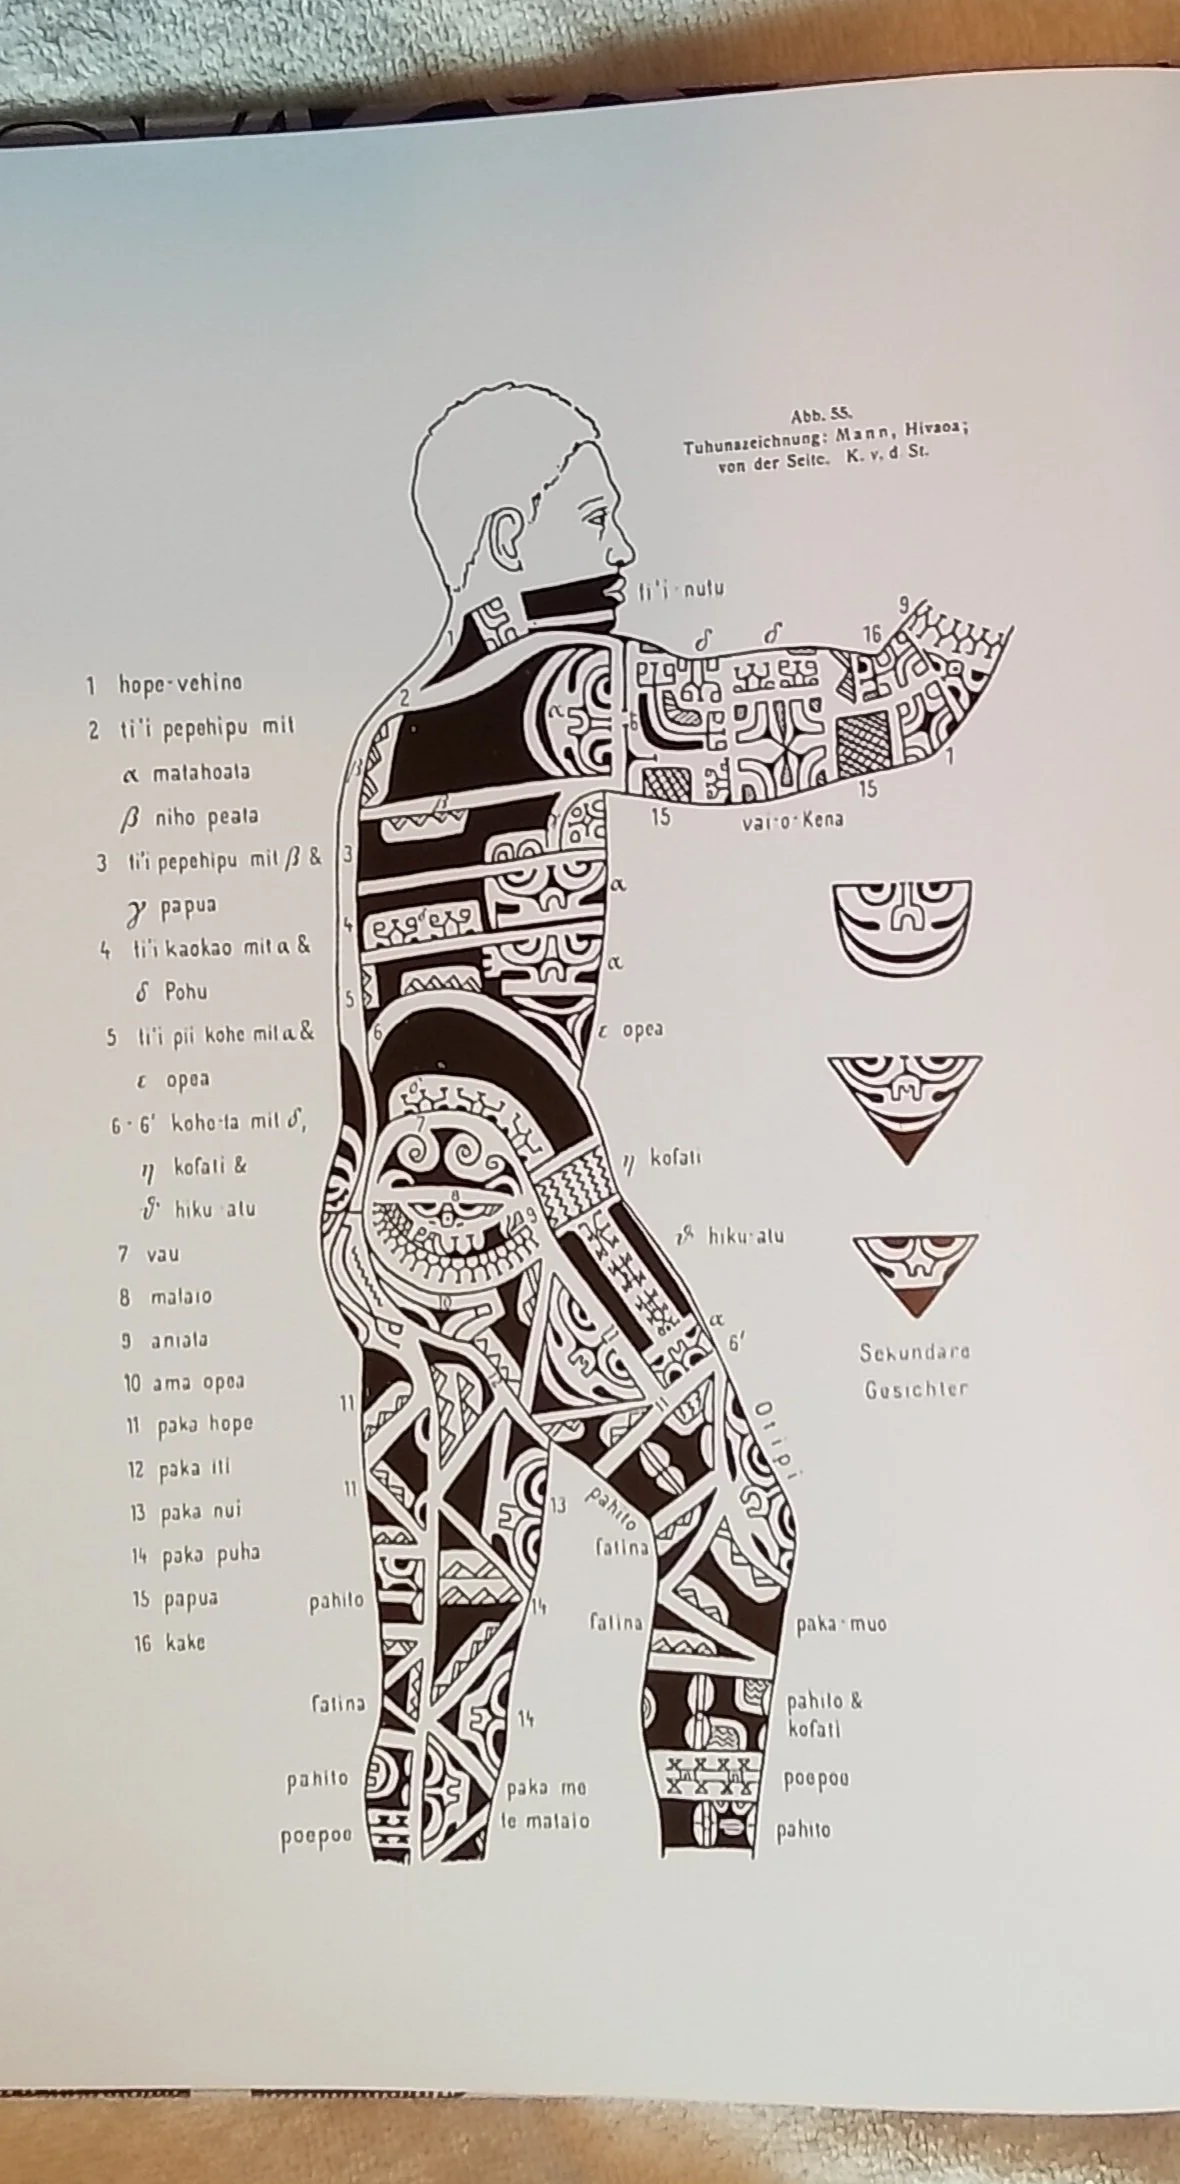 Abb. 55.
Tuhunazeichnung: Mann, Hivaoa;
von der Seite. K. v. d St.
ti'i-nutu
1 hope-vehine
2 ti'i pepehipu mit
α matahoata
β niho peata
3 ti'i pepehipu mit β &
γ papua
4 ti'i kaokao mit α &
δ Pohu
5 ti'i pii kohe mit α &
ε opea
6-6' kohe-ta mit δ,
η kofati &
ϑ hiku atu
7 vau
8 mataio
9 aniata
10 ama opea
11 paka hope
12 paka iti
13 paka nui
14 paka puha
15 papua
16 kake
1
2
β
β
3
4
5
6
α
6
δ
δ
16
9
1
15
15
vai-o-Kena
γ
α
δ
α
ε opea
δ
7
8
9
10
η kofati
ϑ hiku-atu
α
6'
Sekundäre
Gesichter
11
12
11
Otipi
11
11
13
pahito
fatina
pahito
14
fatina
paka-muo
fatina
14
pahito &
kofati
pahito
paka me
te mataio
poepoe
poepoe
pahito